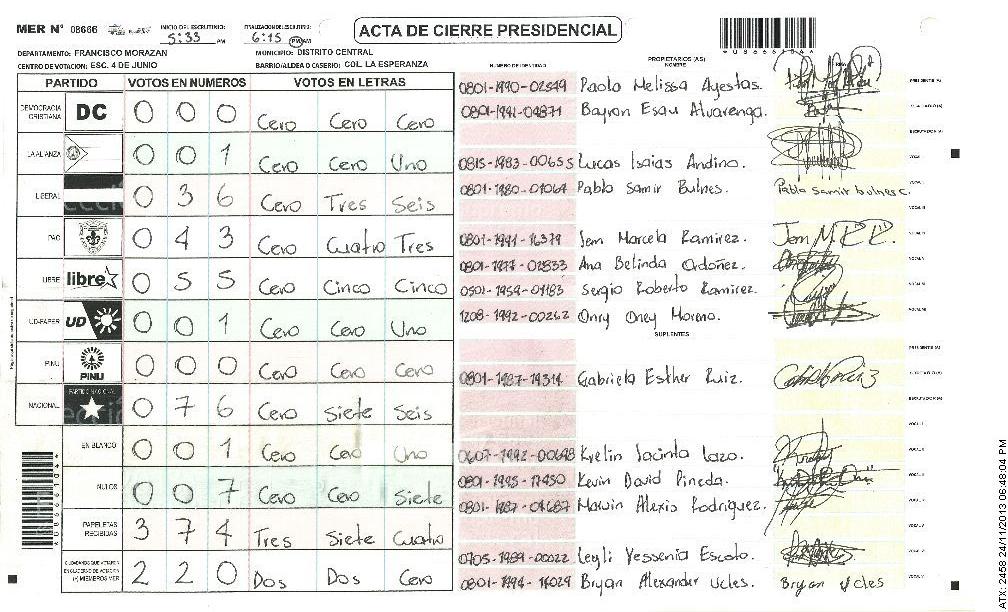 MER Nº 08666
INICIO DEL ESCRUTINIO:
5:33 AM
FINALIZACION DEL ESCRUTINIO:
6:15 PM AM
ACTA DE CIERRE PRESIDENCIAL
DEPARTAMENTO: FRANCISCO MORAZAN
MUNICIPIO: DISTRITO CENTRAL
CENTRO DE VOTACION: ESC. 4 DE JUNIO
BARRIO/ALDEA O CASERIO: COL. LA ESPERANZA
PARTIDO VOTOS EN NUMEROS VOTOS EN LETRAS
DEMOCRACIA CRISTIANA DC 0 0 0 Cero Cero Cero
LA ALIANZA 0 0 1 Cero Cero Uno
LIBERAL 0 3 6 Cero Tres Seis
PAC 0 4 3 Cero Cuatro Tres
LIBRE libre 0 5 5 Cero Cinco Cinco
UD-FAPER UD 0 0 1 Cero Cero Uno
PINU PINU 0 0 0 Cero Cero Cero
NACIONAL PARTIDO NACIONAL 0 7 6 Cero Siete Seis
EN BLANCO 0 0 1 Cero Cero Uno
NULOS 0 0 7 Cero Cero Siete
PAPELETAS RECIBIDAS 3 7 4 Tres Siete Cuatro
CIUDADANOS QUE VOTARON EN CUADERNO DE VOTACION (+) MIEMBROS MER 2 2 0 Dos Dos Cero
NUMERO DE IDENTIDAD PROPIETARIOS (AS) NOMBRE
0801-1990-02549 Paola Melissa Ayestas.
0801-1991-04871 Bayron Esau Alvarenga.
0815-1983-00655 Lucas Isaias Andino.
0801-1980-01064 Pablo Samir Bulnes. Pablo Samir bulnes C.
0801-1991-16379 Jem Marcela Ramirez.
0801-1977-02833 Ana Belinda Ordoñez.
0501-1959-01183 Sergio Roberto Ramirez.
1208-1992-00262 Onry Oney Moreno.
SUPLENTES
0801-1987-14314 Gabriela Esther Ruiz.
0607-1992-00698 Kyelin Jacinta Lazo.
0801-1995-17450 Kevin David Pineda.
0801-1987-04687 Marvin Alexis Rodriguez.
0705-1989-00022 Leyli Yessenia Escoto.
0801-1994-14029 Bryan Alexander Ucles. Bryan Ucles
ATX: 2458 24/11/2013 06:48:04 PM